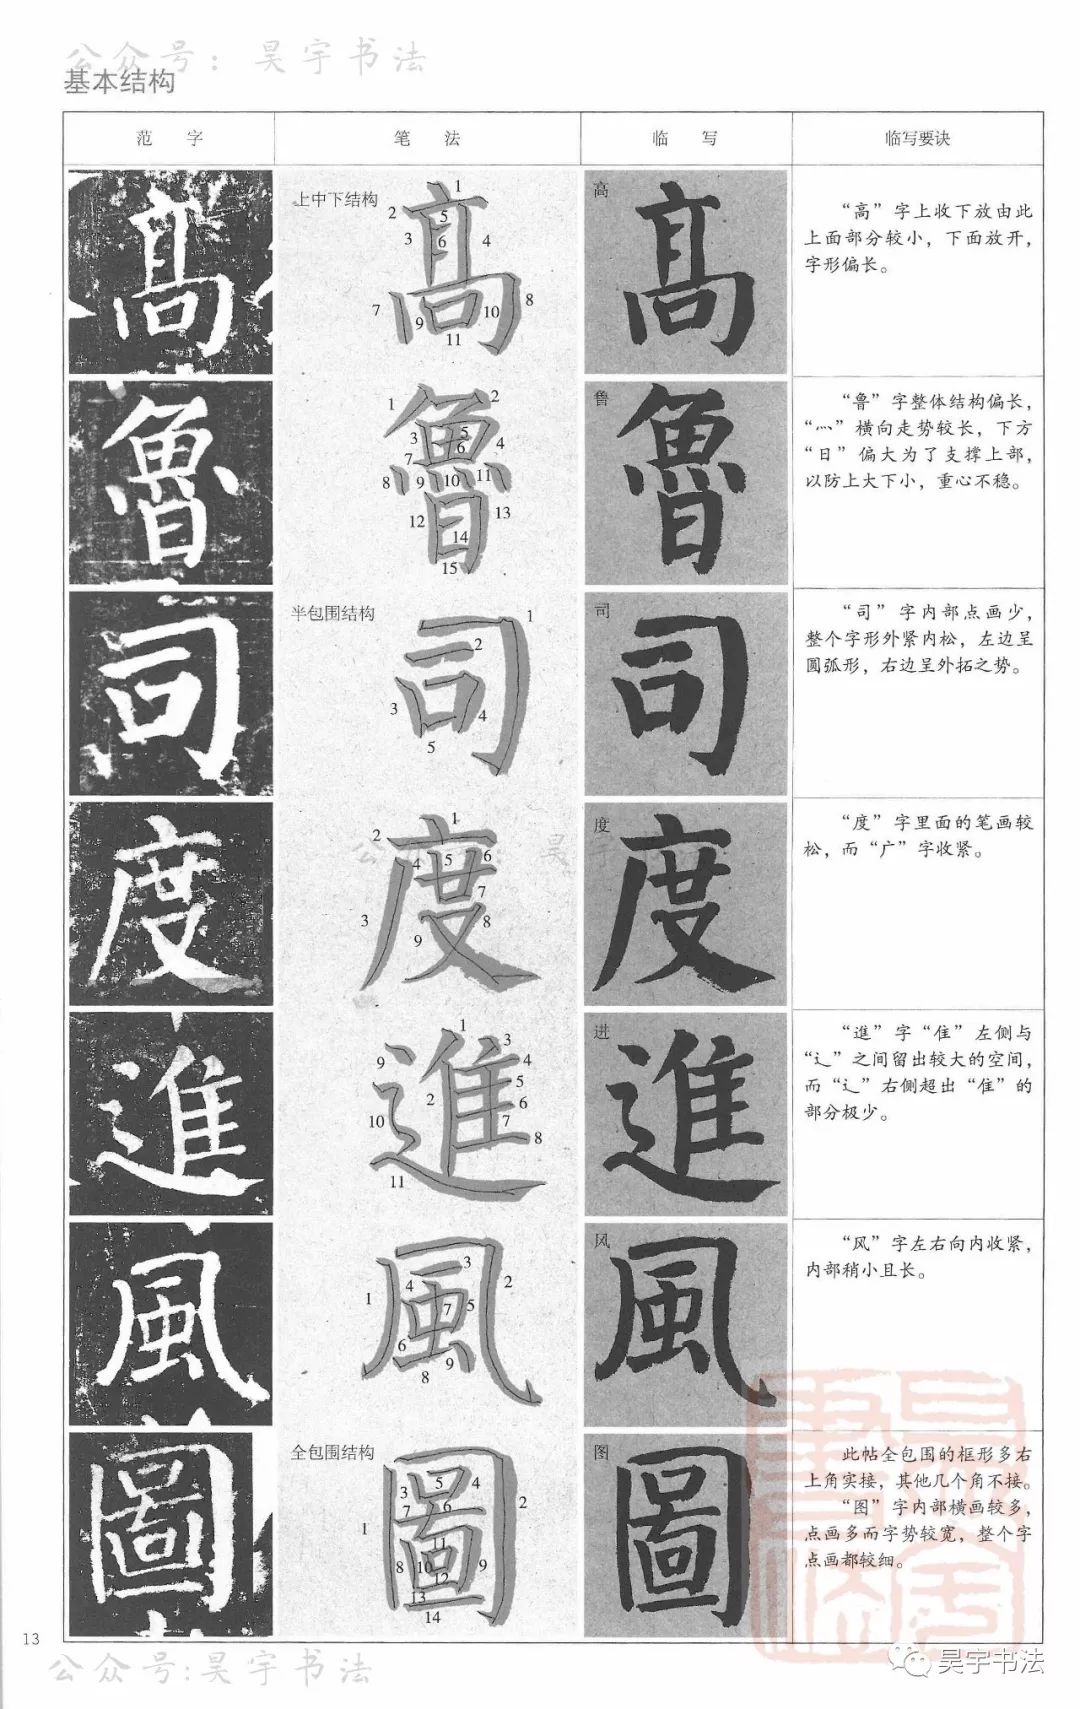 公众号：昊宇书法
基本结构
范 字 笔 法 临 写 临写要诀
高
上中下结构
1
2
5
3
6
4
7
8
9
10
11
高
高
“高”字上收下放由此
上面部分较小，下面放开，
字形偏长。
魯
1
2
3
5
6
4
7
8
9
10
11
12
13
14
15
鲁
魯
“鲁”字整体结构偏长，
“灬”横向走势较长，下方
“日”偏大为了支撑上部，
以防上大下小，重心不稳。
司
半包围结构
1
2
3
4
5
司
司
“司”字内部点画少，
整个字形外紧内松，左边呈
圆弧形，右边呈外拓之势。
度
1
2
4
5
6
7
3
8
9
度
度
“度”字里面的笔画较
松，而“广”字收紧。
進
1
3
9
4
5
2
6
10
7
8
11
进
進
“進”字“隹”左侧与
“辶”之间留出较大的空间，
而“辶”右侧超出“隹”的
部分极少。
風
3
4
2
1
7
5
6
9
8
风
風
“风”字左右向内收紧，
内部稍小且长。
圖
全包围结构
5
4
3
6
2
7
1
11
8
10
9
12
13
14
图
圖
此帖全包围的框形多右
上角实接，其他几个角不接。
“图”字内部横画较多，
点画多而字势较宽，整个字
点画都较细。
13
公众号:昊宇书法
昊宇书法